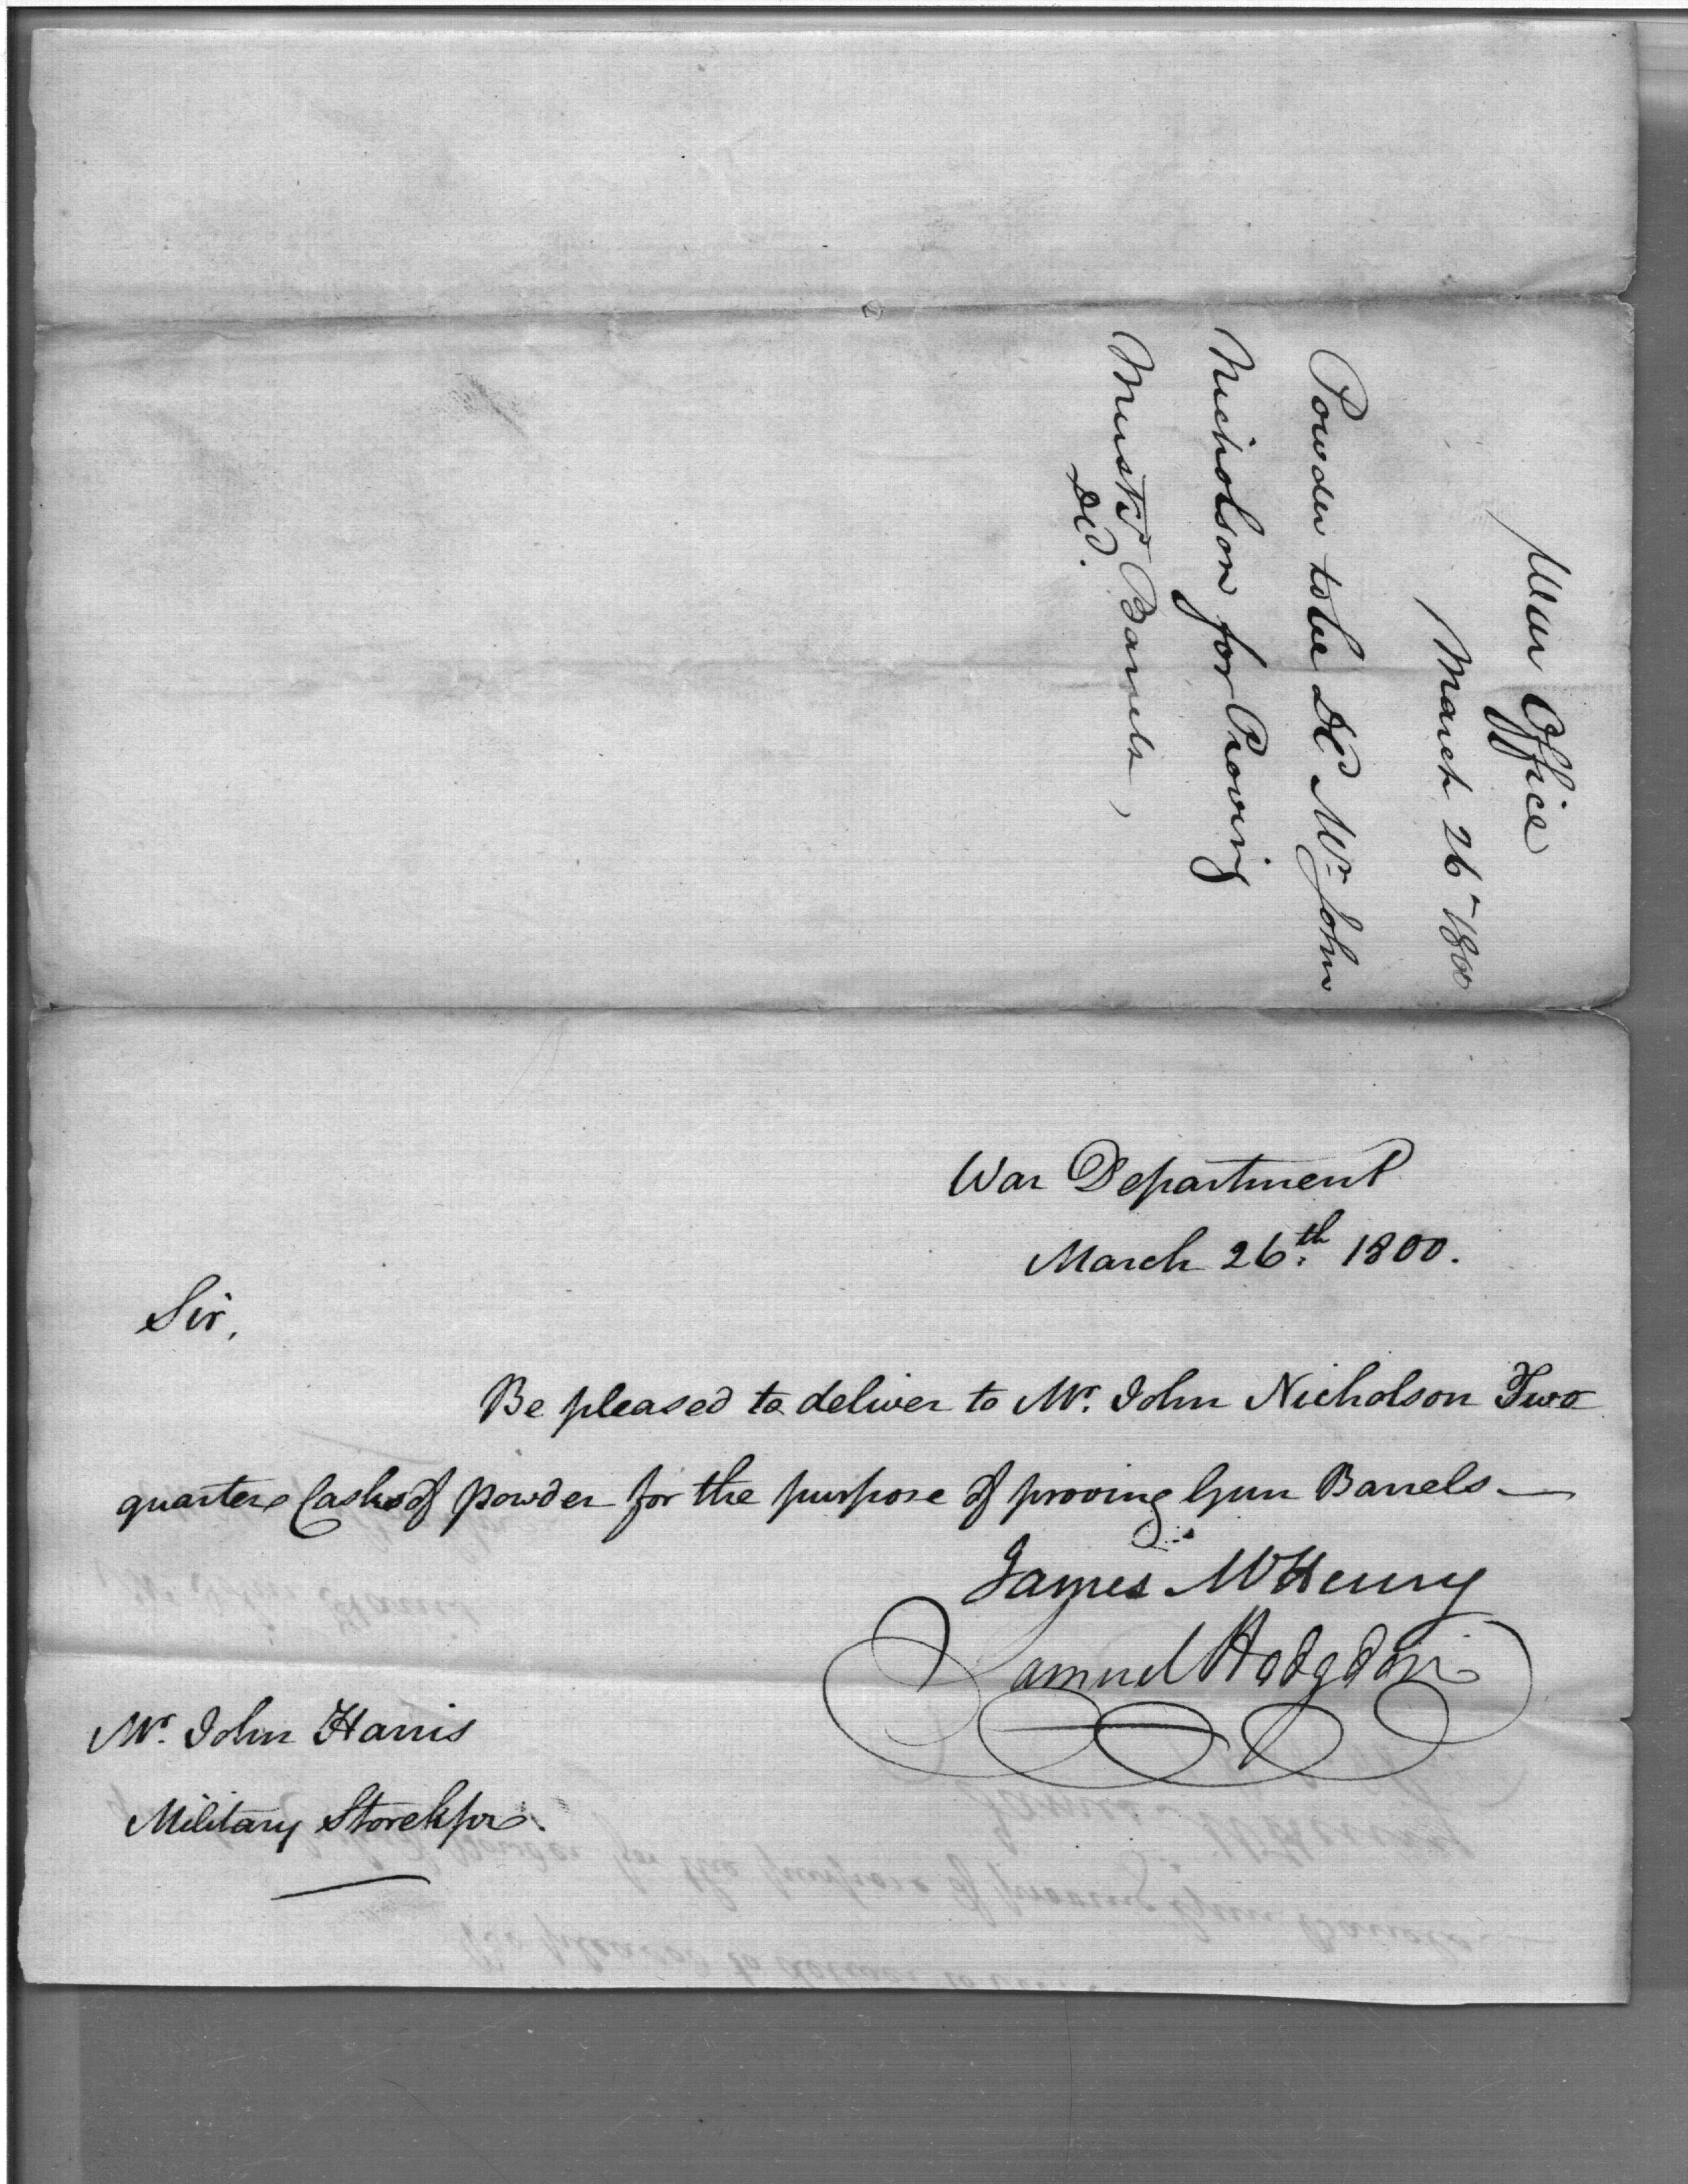 War Office
March 26th 1800
Powder to be Dd Mr John
Nicholson for Proving
Muskt Barrels
Dd.
War Department
March 26th 1800.
Sir,
Be pleased to deliver to Mr. John Nicholson Two
quarter Casks of powder for the purpose of proving Gun Barrels —
James McHenry
Samuel Hodgdon
Mr. John Harris
Military Storekpr.